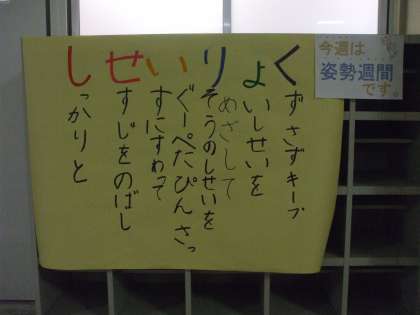 しせいりょく
っかりと
すじをのばし
すにすわって
ぐーぺたぴんさっ
そうのしせいを
めざして
いしせいを
ずさずキープ
今週は
姿勢週間
です。